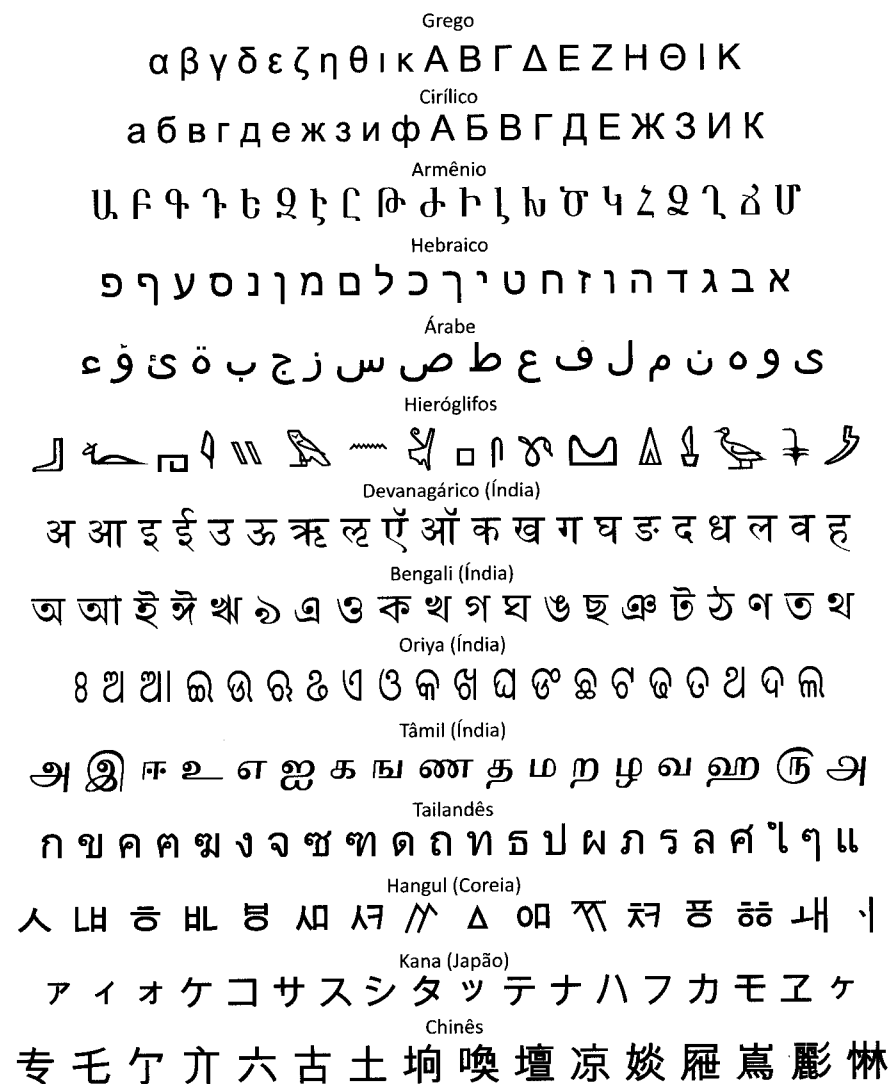 Grego
α β γ δ ε ζ η θ ι κ Α Β Γ Δ Ε Ζ Η Θ Ι Κ
Cirílico
а б в г д е ж з и ф А Б В Г Д Е Ж З И К
Armênio
Ա Բ Գ Դ Ե Զ Է Ը Թ Ժ Ի Լ Խ Ծ Կ Հ Ձ Ղ Ճ Մ
Hebraico
א ב ג ד ה ו ז ח ט י ך כ ל ם מ ן נ ס ע ף פ
Árabe
ى و ه ن م ل ف ع ط ص س ز ج ب ة ئ ؤ ء
Hieróglifos
Devanagárico (Índia)
अ आ इ ई उ ऊ ऋ ऌ ऍ ऑ क ख ग घ ङ द ध ल व ह
Bengali (Índia)
অ আ ই ঈ ঋ ঌ এ ও ক খ গ ঘ ঙ ছ ঞ ট ঠ ণ ত থ
Oriya (Índia)
ଃ ଅ ଆ ଇ ଉ ଋ ଌ ଏ ଓ କ ଖ ଘ ଙ ଛ ଟ ଢ ତ ଥ ଦ ଲ
Tâmil (Índia)
அ இ ஈ உ எ ஐ க ங ண த ம ற ழ வ ஹ அ
Tailandês
ก ข ค ฅ ฆ ง จ ซ ฑ ด ถ ท ธ ป ผ ภ ร ล ศ ๆ แ
Hangul (Coreia)
ㅎ
Kana (Japão)
ァ ィ ォ ケ コ サ ス シ タ ッ テ ナ ハ フ カ モ ヱ ヶ
Chinês
专 乇 亇 亣 六 古 土 坰 喚 壇 凉 婒 嵩 彲 惏